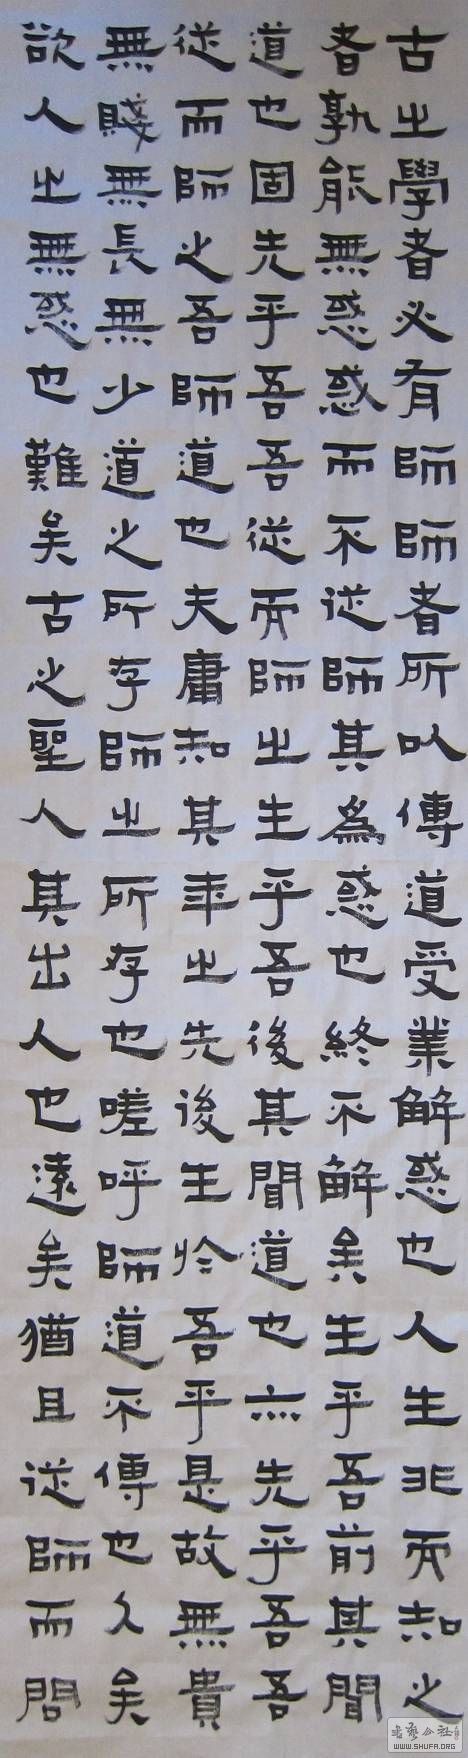 古之學者必有師師者所以傳道受業解惑也人生非而知之
者孰能無惑惑而不從師其為惑也終不解矣生乎吾前其聞
道也固先乎吾吾從而師之生乎吾後其聞道也亦先乎吾吾
從而師之吾師道也夫庸知其年之先後生於吾乎是故無貴
無賤無長無少道之所存師之所存也嗟呼師道不傳也久矣
欲人之無惑也難矣古之聖人其出人也遠矣猶且從師而問
WWW.SHUFA.ORG